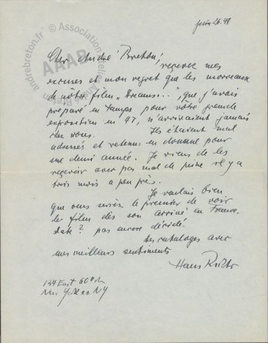 juin 28. 48
Cher André Breton!
recevez mes
excuses et mon regret que les morceaux
de notre film "Dreams..." que j'avais
préparé en temps pour votre grande
exposition en 47, n'arrivaient jamais
chez vous.
Ils étaient mal
adressés et retenu en douane pour
une demi année. Je viens de les
recevoir avec pas mal de peine il y a
trois mois a peu près.
Je voulais bien
que vous seriez le premier de voir
le film dès son arrivé en France.
date? pas encore décidé.
les catalogues avec
mes meilleurs sentiments
Hans Richter
134 East 60th
New York NY
andrebreton.fr
Association